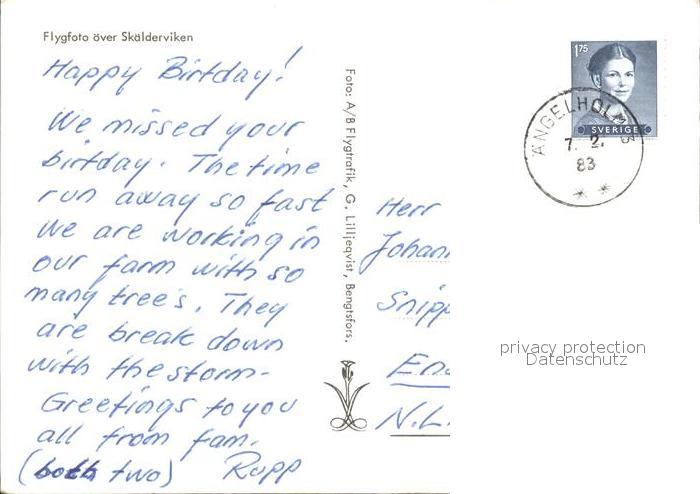 Flygfoto över Skälderviken
Happy Birtday!
We missed your
birtday. The time
run away so fast
We are working in
our farm with so
many tree's. They
are break down
with the storm-
Greetings to you
all from fam.
(both two) Rupp
Foto: A/B Flygtrafik, G. Lilljeqvist, Bengtsfors.
175
SVERIGE
ÄNGELHOLM
7. 2.
83
Herr
Johann
Snipp
En
N.L.
privacy protection
Datenschutz